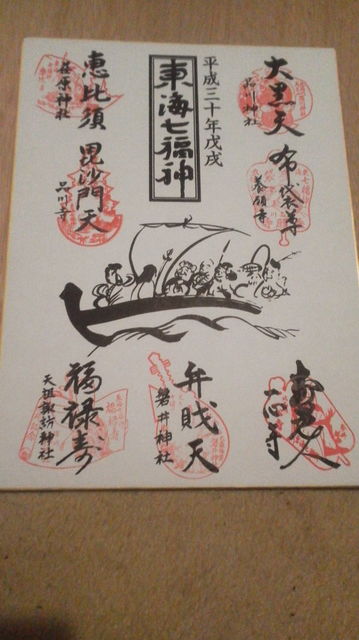 東海七福神
平成三十年戊戌
大黒天
品川神社
布袋尊
養願寺
寿老人
一心寺
恵比須
荏原神社
毘沙門天
品川寺
弁財天
磐井神社
福禄寿
天祖諏訪神社